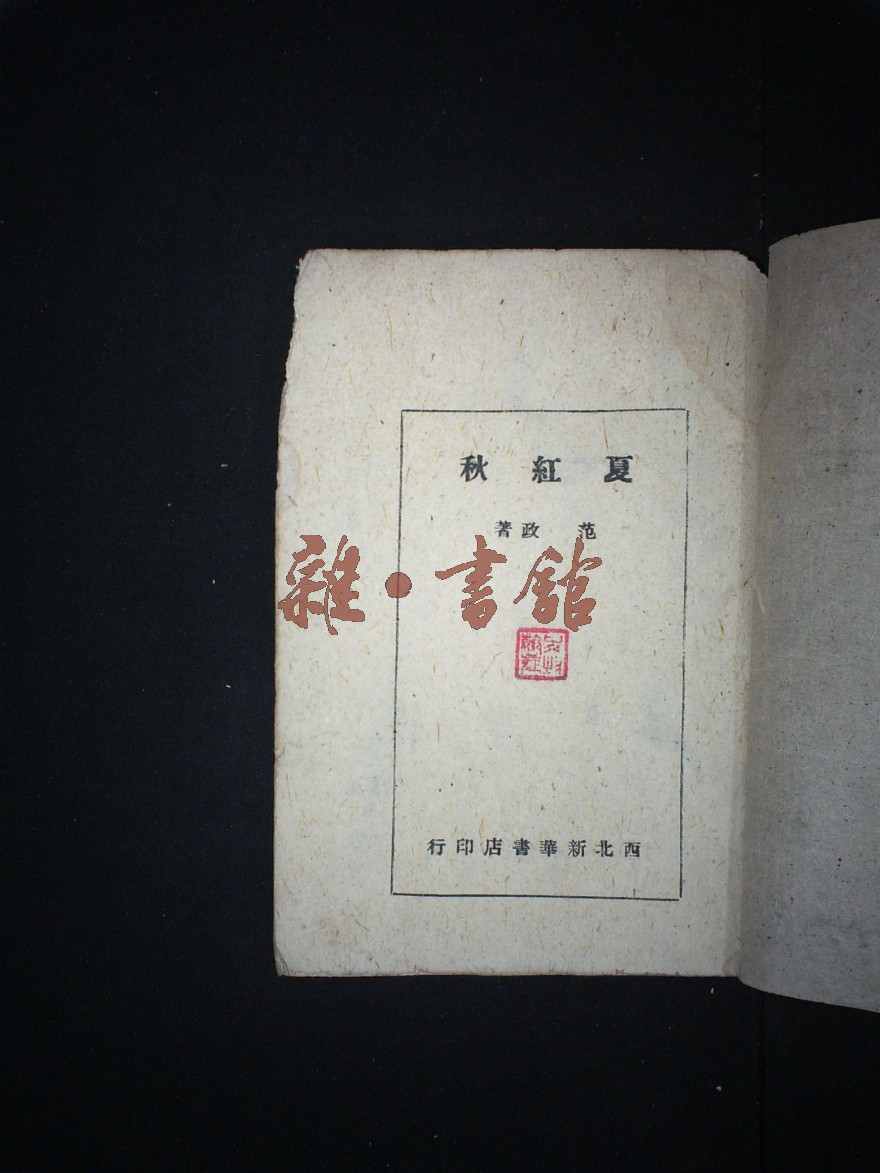 夏紅秋
范政著
雜·書館
西北新華書店印行